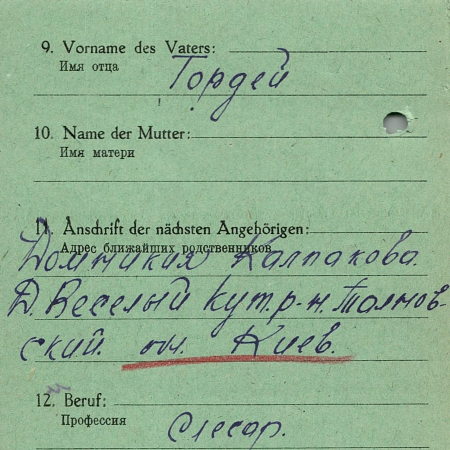 9. Vorname des Vaters:
Имя отца
Гордей
10. Name der Mutter:
Имя матери
11. Anschrift der nächsten Angehörigen:
Адрес ближайших родственников
Домникия Калпакова.
Д. Веселый кут. р-н. Талнов-
ский. обл. Киев.
12. Beruf:
Профессия
Слесар.